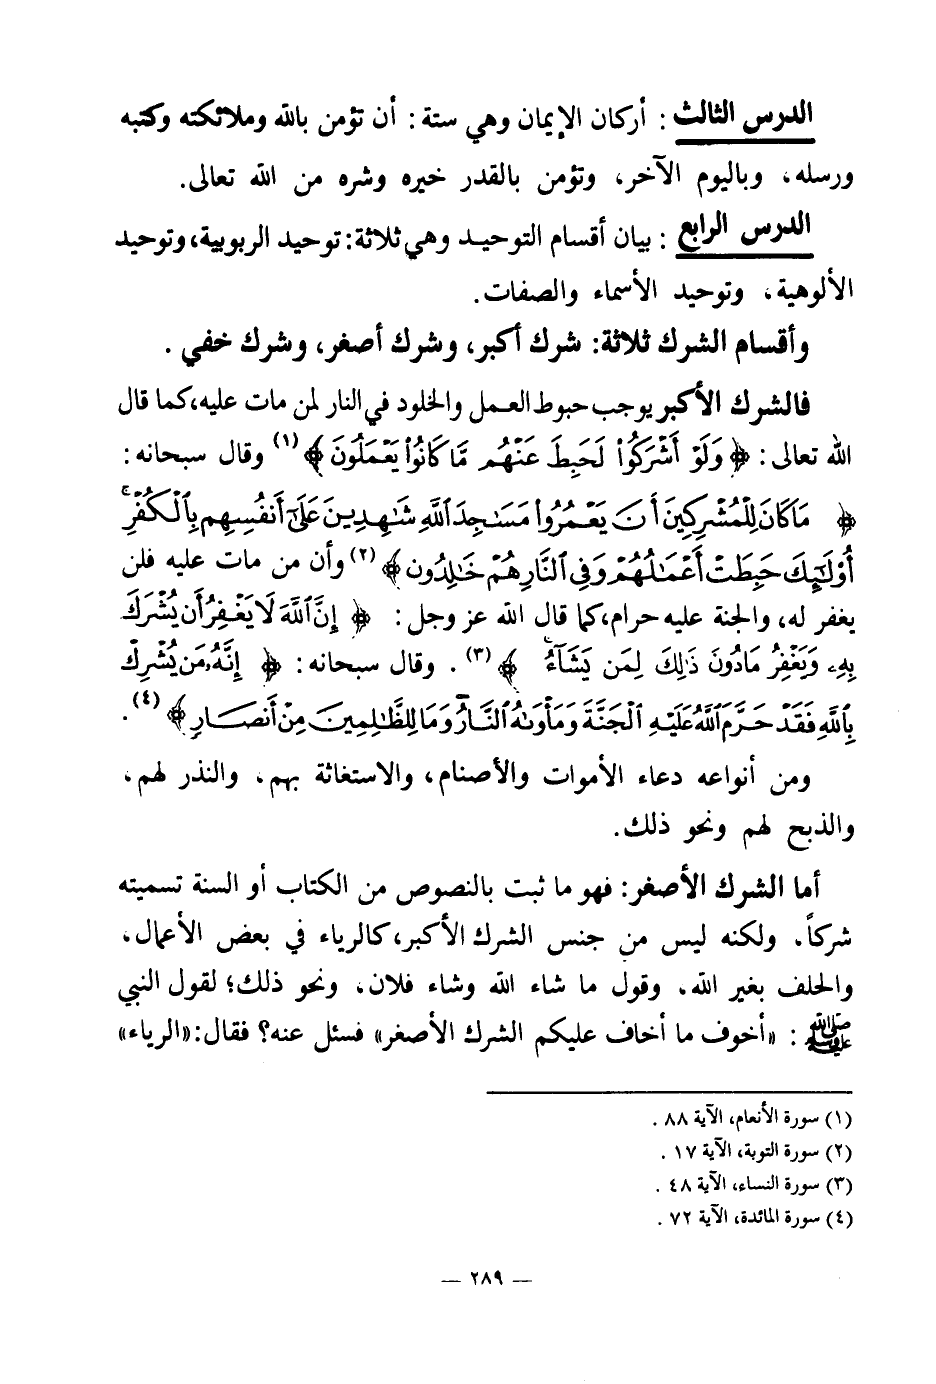 الدرس الثالث : أركان الإيمان وهي ستة : أن تؤمن بالله وملائكته وكتبه
ورسله، وباليوم الآخر، وتؤمن بالقدر خيره وشره من الله تعالى.
الدرس الرابع : بيان أقسام التوحيد وهي ثلاثة: توحيد الربوبية، وتوحيد
الألوهية، وتوحيد الأسماء والصفات.
وأقسام الشرك ثلاثة: شرك أكبر، وشرك أصغر، وشرك خفي .
فالشرك الأكبر يوجب حبوط العمل والخلود في النار لمن مات عليه، كما قال
الله تعالى : ﴿ وَلَوْ أَشْرَكُوا۟ لَحَبِطَ عَنْهُم مَّا كَانُوا۟ يَعْمَلُونَ ﴾ (١) وقال سبحانه :
﴿ مَا كَانَ لِلْمُشْرِكِينَ أَن يَعْمُرُوا۟ مَسَٰجِدَ ٱللَّهِ شَٰهِدِينَ عَلَىٰٓ أَنفُسِهِم بِٱلْكُفْرِ ۚ
أُو۟لَٰٓئِكَ حَبِطَتْ أَعْمَٰلُهُمْ وَفِى ٱلنَّارِ هُمْ خَٰلِدُون ﴾ (٢) وأن من مات عليه فلن
يغفر له، والجنة عليه حرام، كما قال الله عز وجل : ﴿ إِنَّ ٱللَّهَ لَا يَغْفِرُ أَن يُشْرَكَ
بِهِۦ وَيَغْفِرُ مَا دُونَ ذَٰلِكَ لِمَن يَشَآءُ ۚ ﴾ (٣) . وقال سبحانه : ﴿ إِنَّهُۥ مَن يُشْرِكْ
بِٱللَّهِ فَقَدْ حَرَّمَ ٱللَّهُ عَلَيْهِ ٱلْجَنَّةَ وَمَأْوَىٰهُ ٱلنَّارُ ۖ وَمَا لِلظَّٰلِمِينَ مِنْ أَنصَارٍ ﴾ (٤) .
ومن أنواعه دعاء الأموات والأصنام، والاستغاثة بهم، والنذر لهم،
والذبح لهم ونحو ذلك.
أما الشرك الأصغر: فهو ما ثبت بالنصوص من الكتاب أو السنة تسميته
شركاً. ولكنه ليس من جنس الشرك الأكبر، كالرياء في بعض الأعمال،
والحلف بغير الله. وقول ما شاء الله وشاء فلان، ونحو ذلك؛ لقول النبي
ﷺ : «أخوف ما أخاف عليكم الشرك الأصغر» فسئل عنه؟ فقال: «الرياء»
(١) سورة الأنعام، الآية ٨٨ .
(٢) سورة التوبة، الآية ١٧ .
(٣) سورة النساء، الآية ٤٨ .
(٤) سورة المائدة، الآية ٧٢ .
— ٢٨٩ —